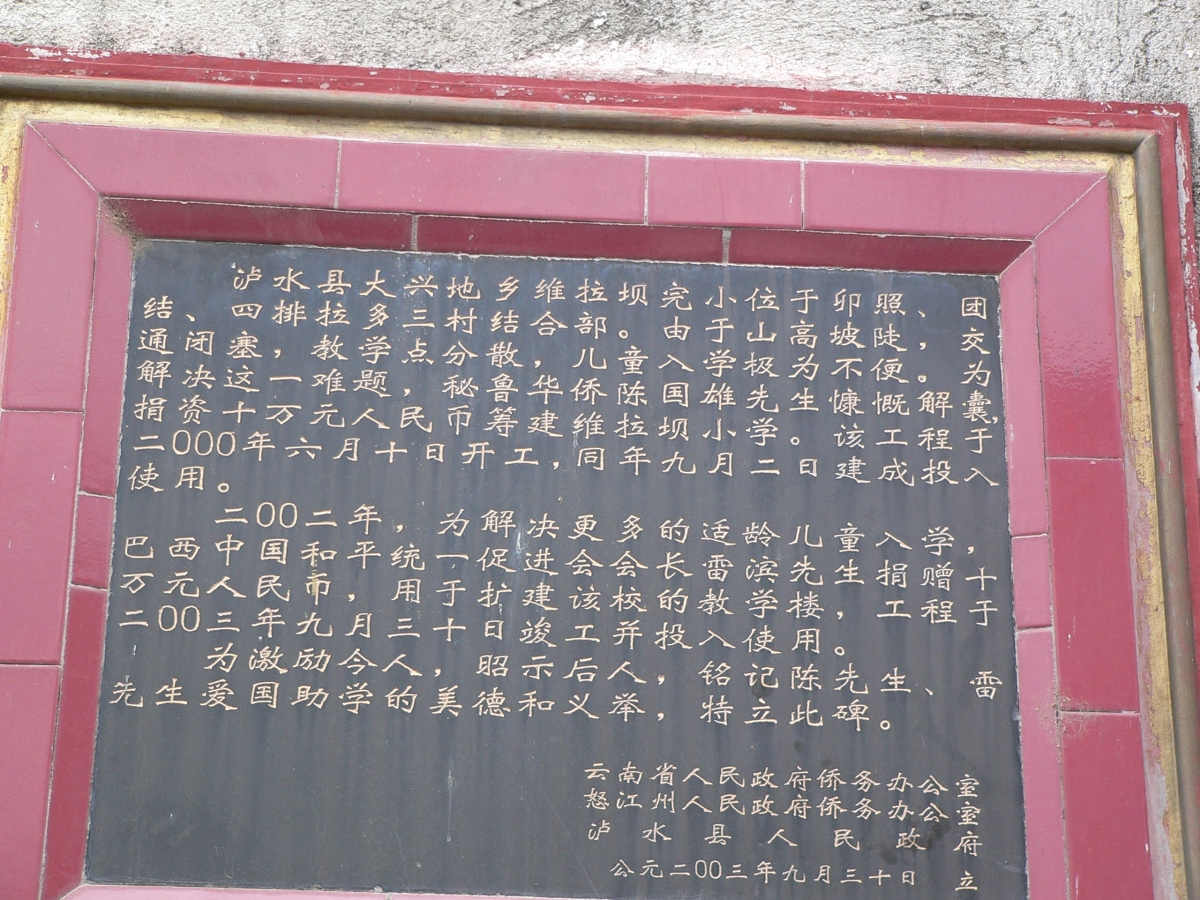 泸水县大兴地乡维拉坝完小位于卯照、团
结、四排拉多三村结合部。由于山高坡陡,交
通闭塞,教学点分散,儿童入学极为不便。为
解决这一难题,秘鲁华侨陈国雄先生慷慨解囊,
捐资十万元人民币筹建维拉坝小学。该工程于
二000年六月十日开工,同年九月二日建成投入
使用。
二00二年,为解决更多的适龄儿童入学,
巴西中国和平统一促进会会长雷滨先生捐赠十
万元人民币,用于扩建该校的教学楼,工程于
二00三年九月三十日竣工并投入使用。
为激励今人,昭示后人,铭记陈先生、雷
先生爱国助学的美德和义举,特立此碑。
云南省人民政府侨务办公室
怒江州人民政府侨务办公室
泸水县人民政府
公元二00三年九月三十日 立